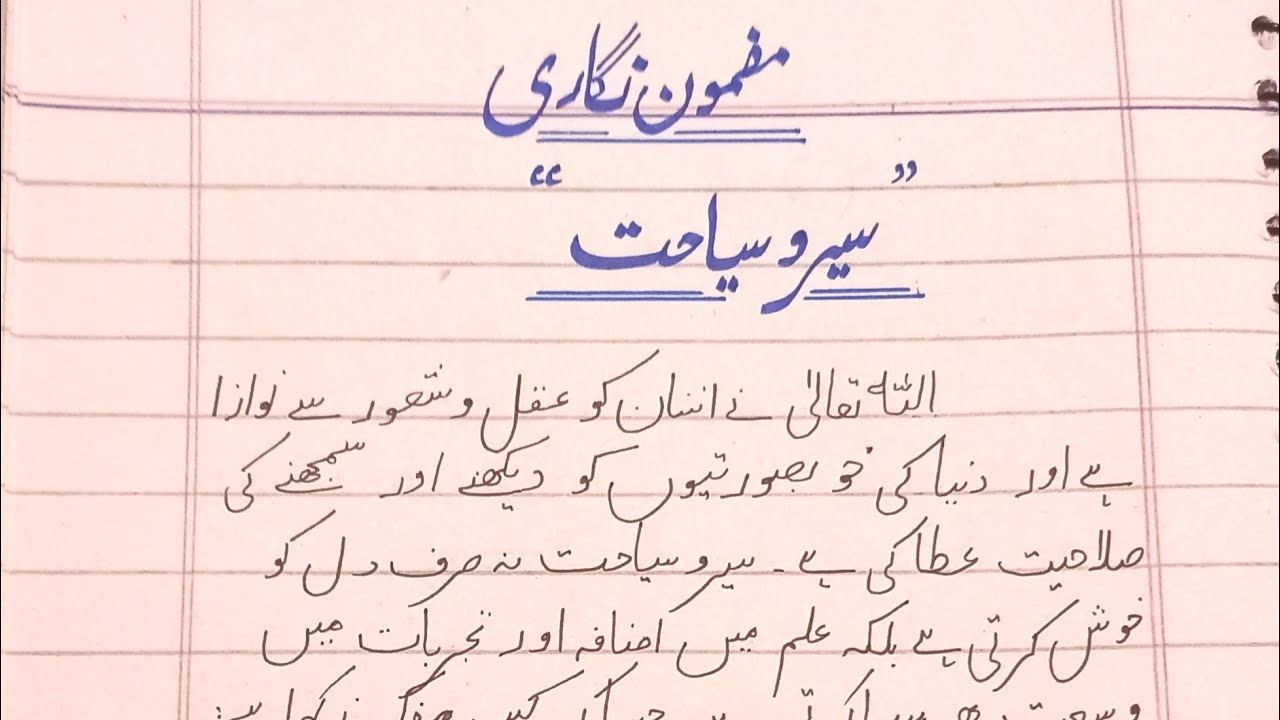 مضمون نگاری
”سیر و سیاحت“
اللہ تعالیٰ نے انسان کو عقل و شعور سے نوازا
ہے اور دنیا کی خوبصورتیوں کو دیکھنے اور سمجھنے کی
صلاحیت عطا کی ہے۔ سیر و سیاحت نہ صرف دل کو
خوش کرتی ہے بلکہ علم میں اضافہ اور تجربات میں